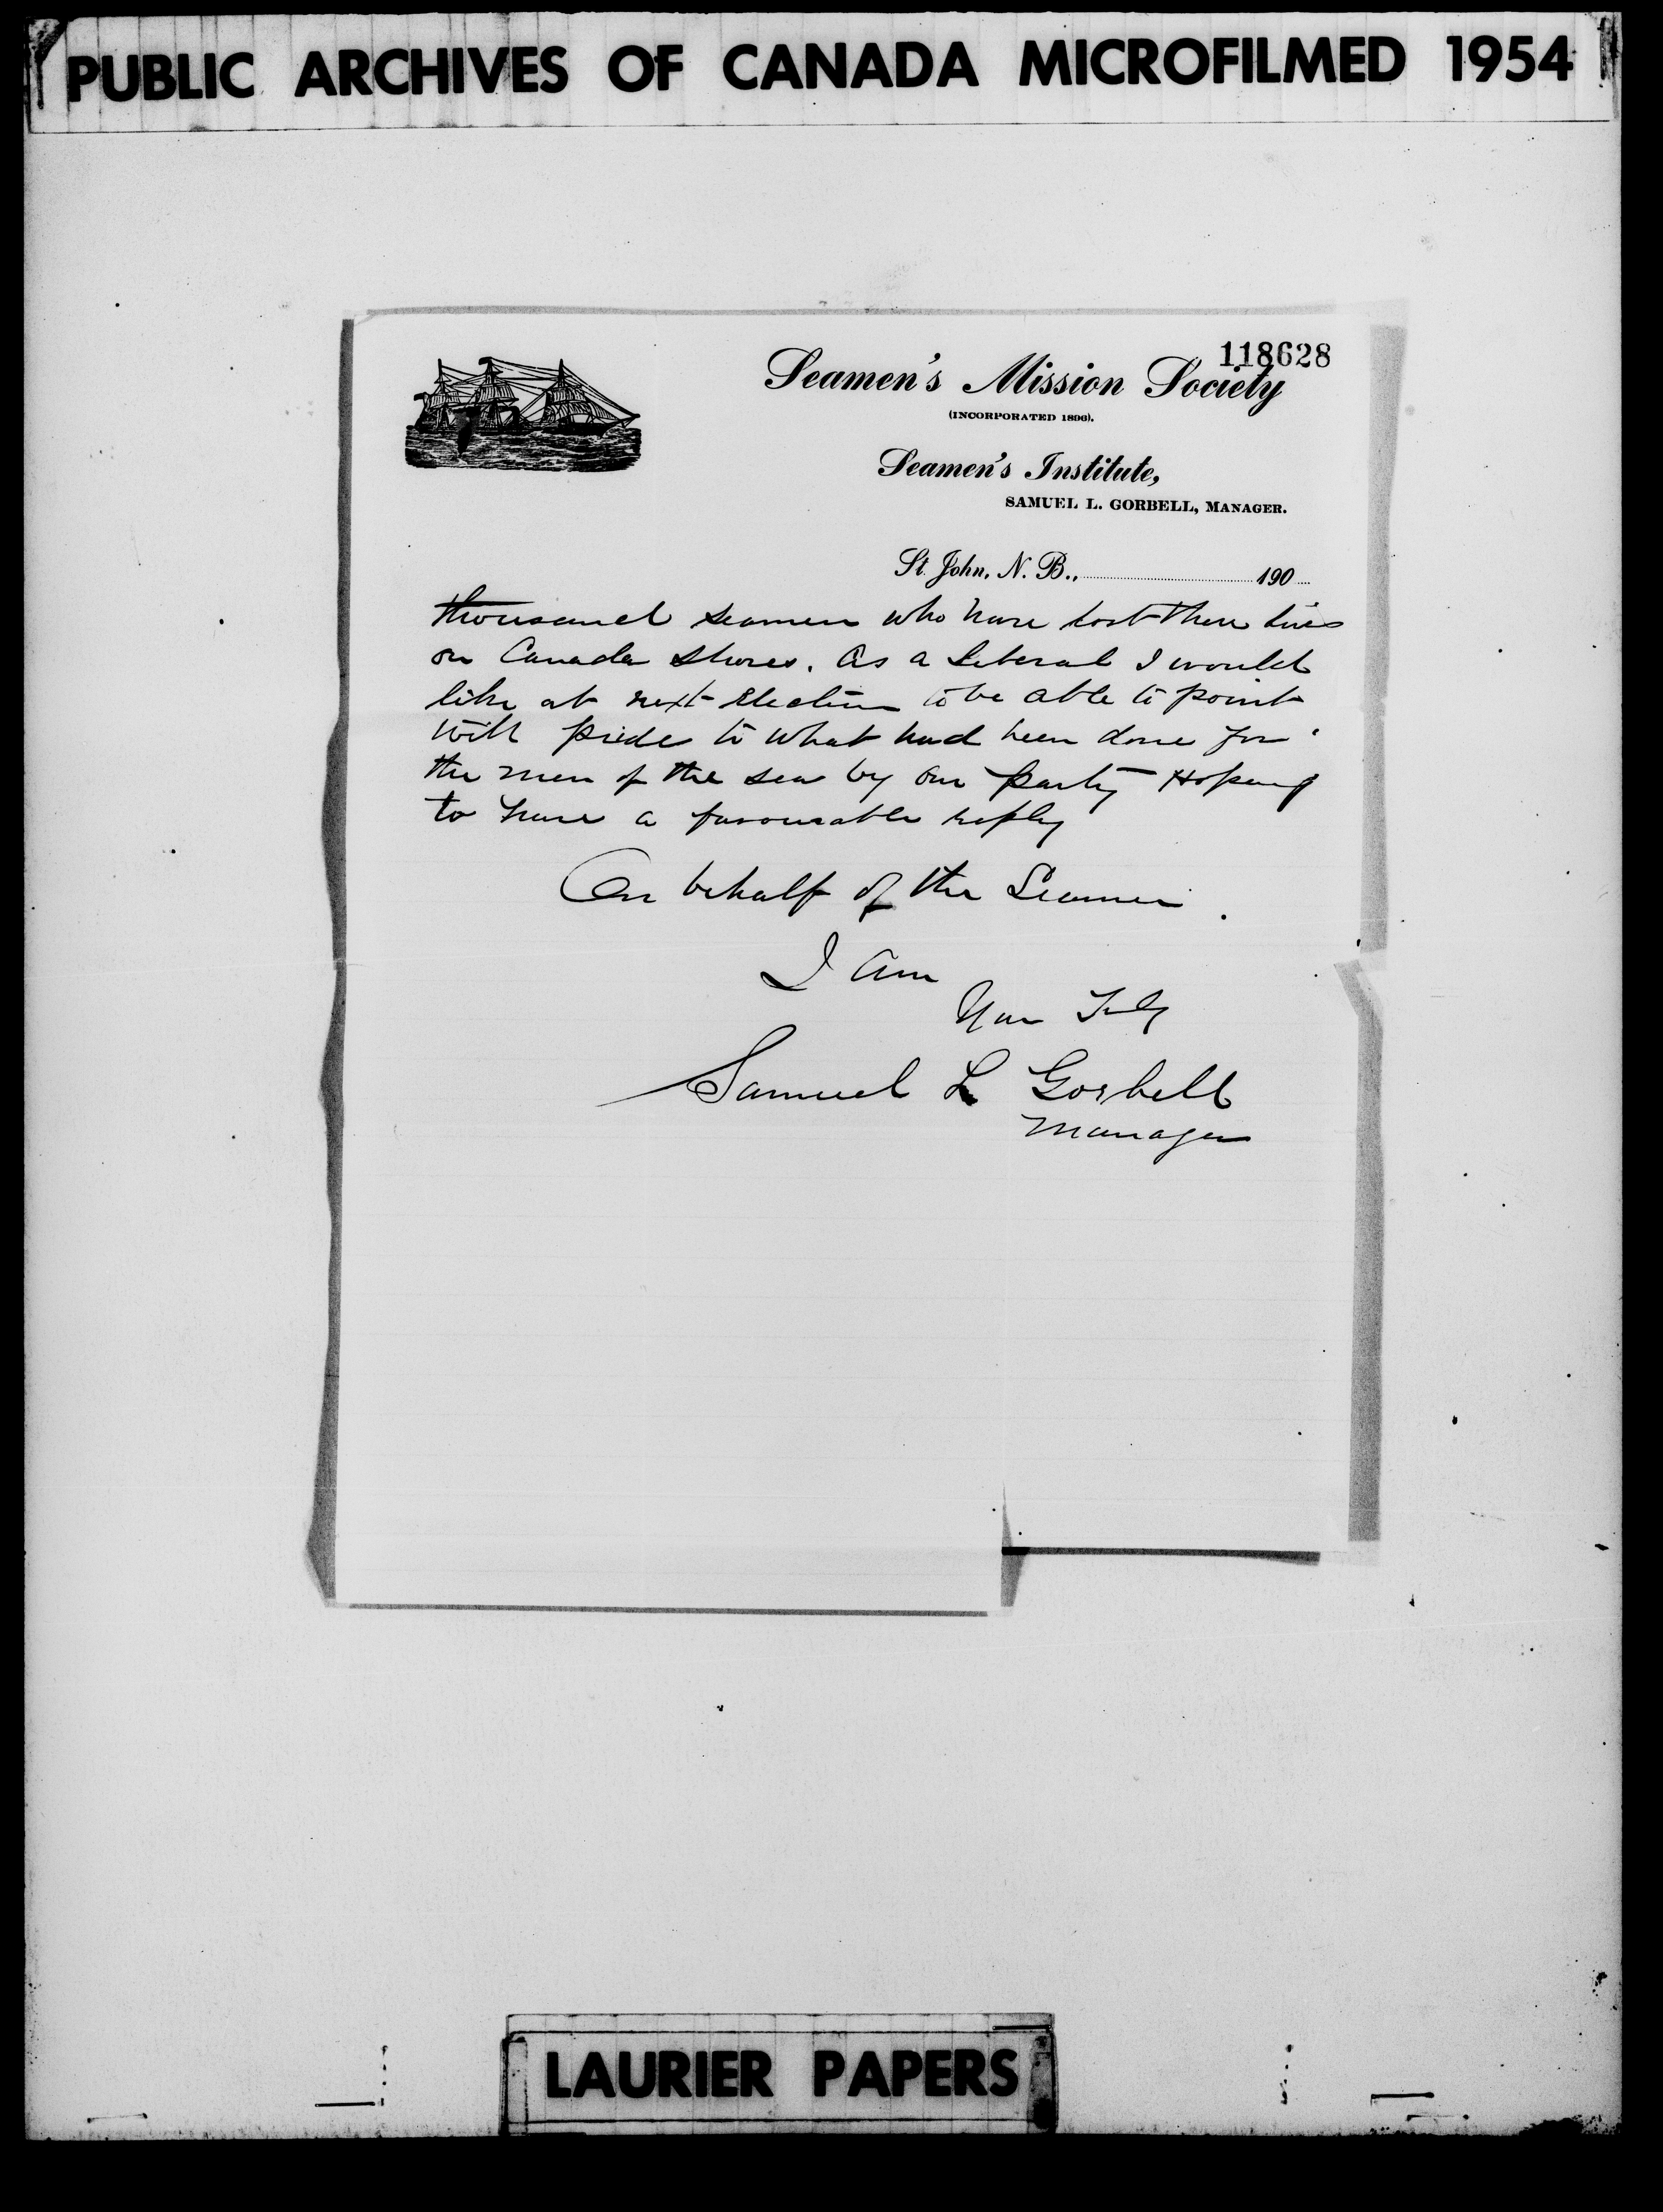 PUBLIC ARCHIVES OF CANADA MICROFILMED 1954
118628
Seamen's Mission Society
(INCORPORATED 1896).
Seamen's Institute,
SAMUEL L. GORBELL, MANAGER.
St. John, N. B., 190
thousand seamen who have lost there lives
on Canada shores. As a Liberal I would
like at next Election to be able to point
with pride to what had been done for
the men of the sea by our party Hoping
to have a favourable reply
On behalf of the Seamen.
I am
Your Truly
Samuel L Gorbell
Manager
LAURIER PAPERS